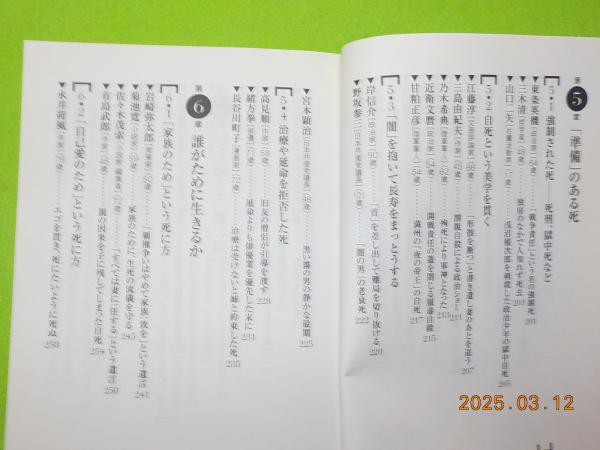 第5章 「準備」のある死
5・1 強制された死——死刑、獄中死など
▼東条英機（政治家）（64歳）……「戦争責任」という名の強制死 201
▼三木清（哲学者）（48歳）……独房のなかで人知れず死ぬ 203
▼山口二矢（右翼活動家）（17歳）……浅沼稲次郎を刺殺した政治少年の獄中自死 205
5・2 自死という美学を貫く
▼江藤淳（文芸評論家）（66歳）……「形骸を断つ」と書き遺し妻のあとを追う 207
▼三島由紀夫（作家）（45歳）……割腹自殺による政治ショー 211
▼乃木希典（陸軍軍人）（62歳）……殉死により軍神となった 213
▼近衛文麿（政治家）（54歳）……開戦責任の蓋を閉じる服毒自殺 215
▼甘粕正彦（陸軍軍人）（54歳）……満州の「夜の帝王」の自死 217
5・3 「闇」を抱いて長寿をまっとうする
▼岸信介（政治家）（90歳）……「首」を差し出して難局を切り抜ける 220
▼野坂参三（日本共産党議長）（101歳）……「闇の男」の老衰死 222
▼宮本顕治（日本共産党議長）（98歳）……黒い霧の男の静かな最期 225
5・4 治療や延命を拒否した死
▼高見順（作家）（58歳）……旧友の僧侶が引導を渡す 228
▼緒方拳（俳優）（71歳）……延命よりも俳優業を優先した末に 231
▼長谷川町子（漫画家）（72歳）……治療は受けないと姉と約束した死 235
第6章 誰がために生きるか
6・1 「家族のため」という死に方
▼岩崎弥太郎（実業家）（50歳）……「覇権争いはやめて家族一致を」という遺言 241
▼菊池寛（小説家）（59歳）……家族のために、生死の流儀を守る 245
▼佐々木茂索（小説家、編集者）（72歳）……「すべては妻に一任する」という遺言 250
▼有島武郎（作家）（45歳）……親の因果を子に残してしまった自死 254
6・2 「自己愛のため」という死に方
▼永井荷風（作家）（79歳）……エゴを貫き、死にたいように死ぬ 258
2025.03.12